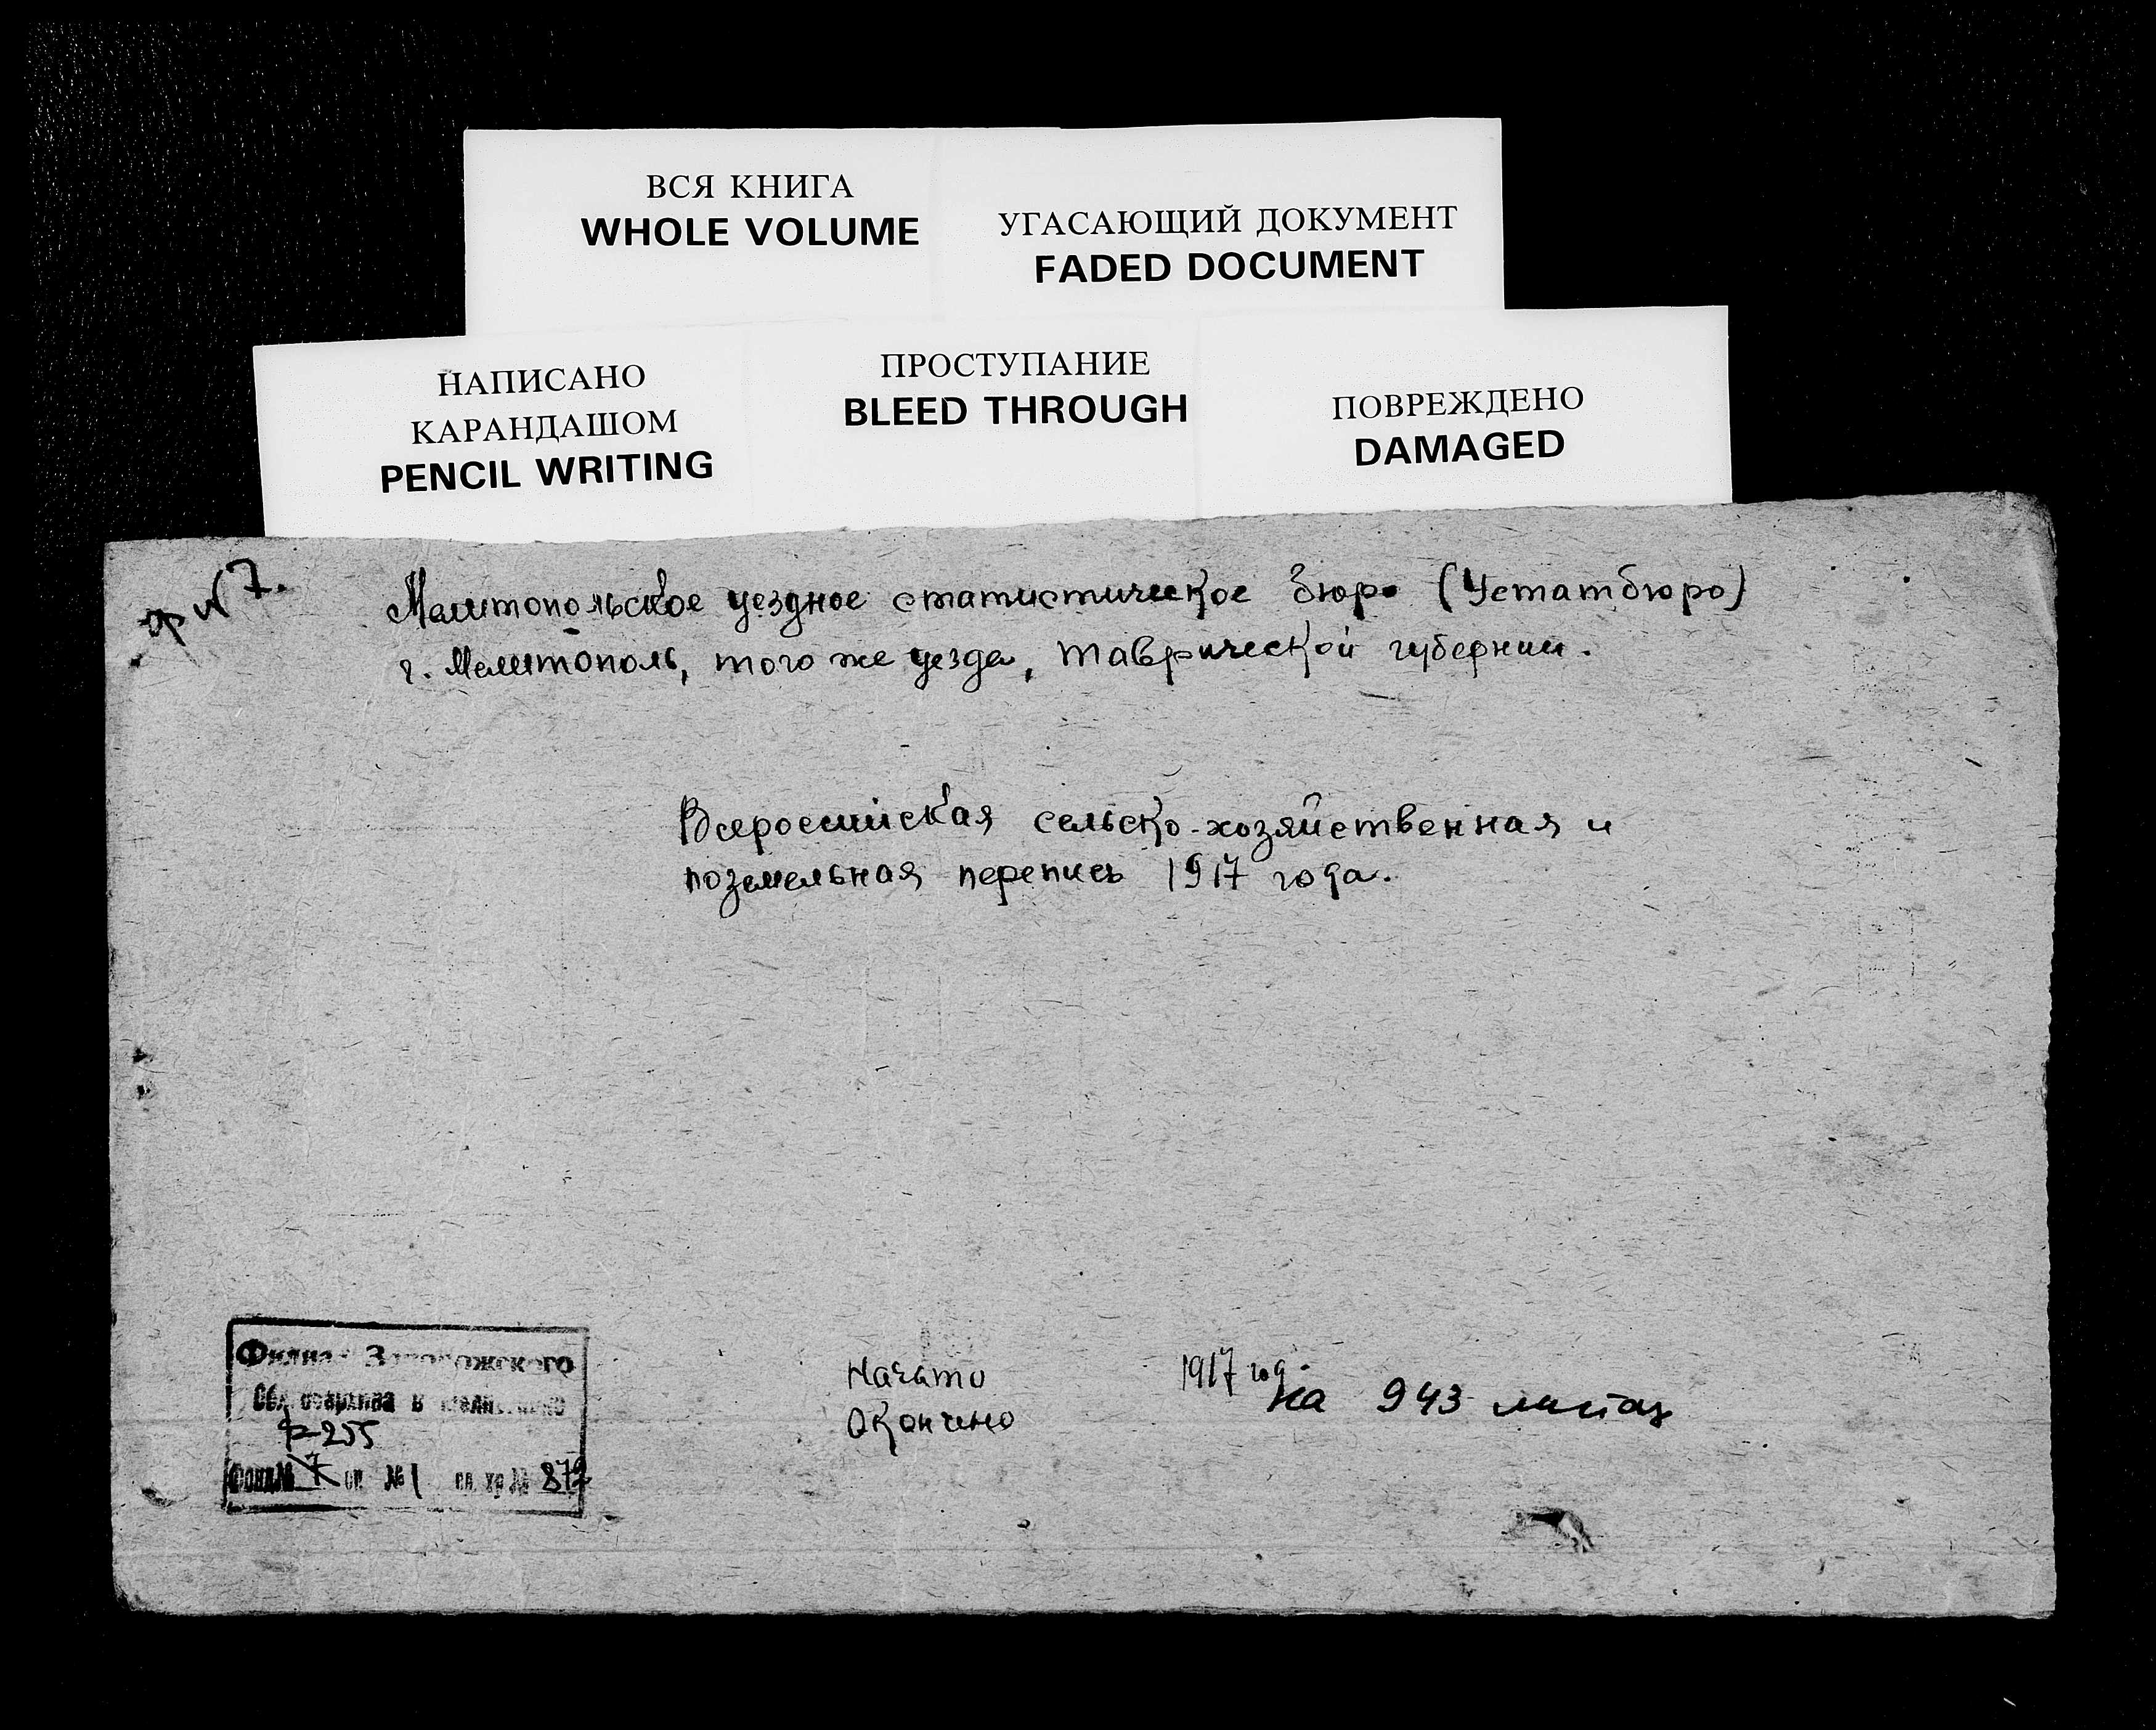 ВСЯ КНИГА
WHOLE VOLUME
УГАСАЮЩИЙ ДОКУМЕНТ
FADED DOCUMENT
НАПИСАНО
КАРАНДАШОМ
PENCIL WRITING
ПРОСТУПАНИЕ
BLEED THROUGH
ПОВРЕЖДЕНО
DAMAGED
ф № 7.
Мелитопольское уездное статистическое бюро (Устатбюро)
г. Мелитополь, того же уезда, Таврической губернии.
Всероссийская сельско-хозяйственная и
поземельная перепись 1917 года.
Филиал Запорожского
Обл госархива в
Р-255
Фонд № 7 оп №1 ед. хр № 872
Начато 1917 год.
Окончено
на 943 листах